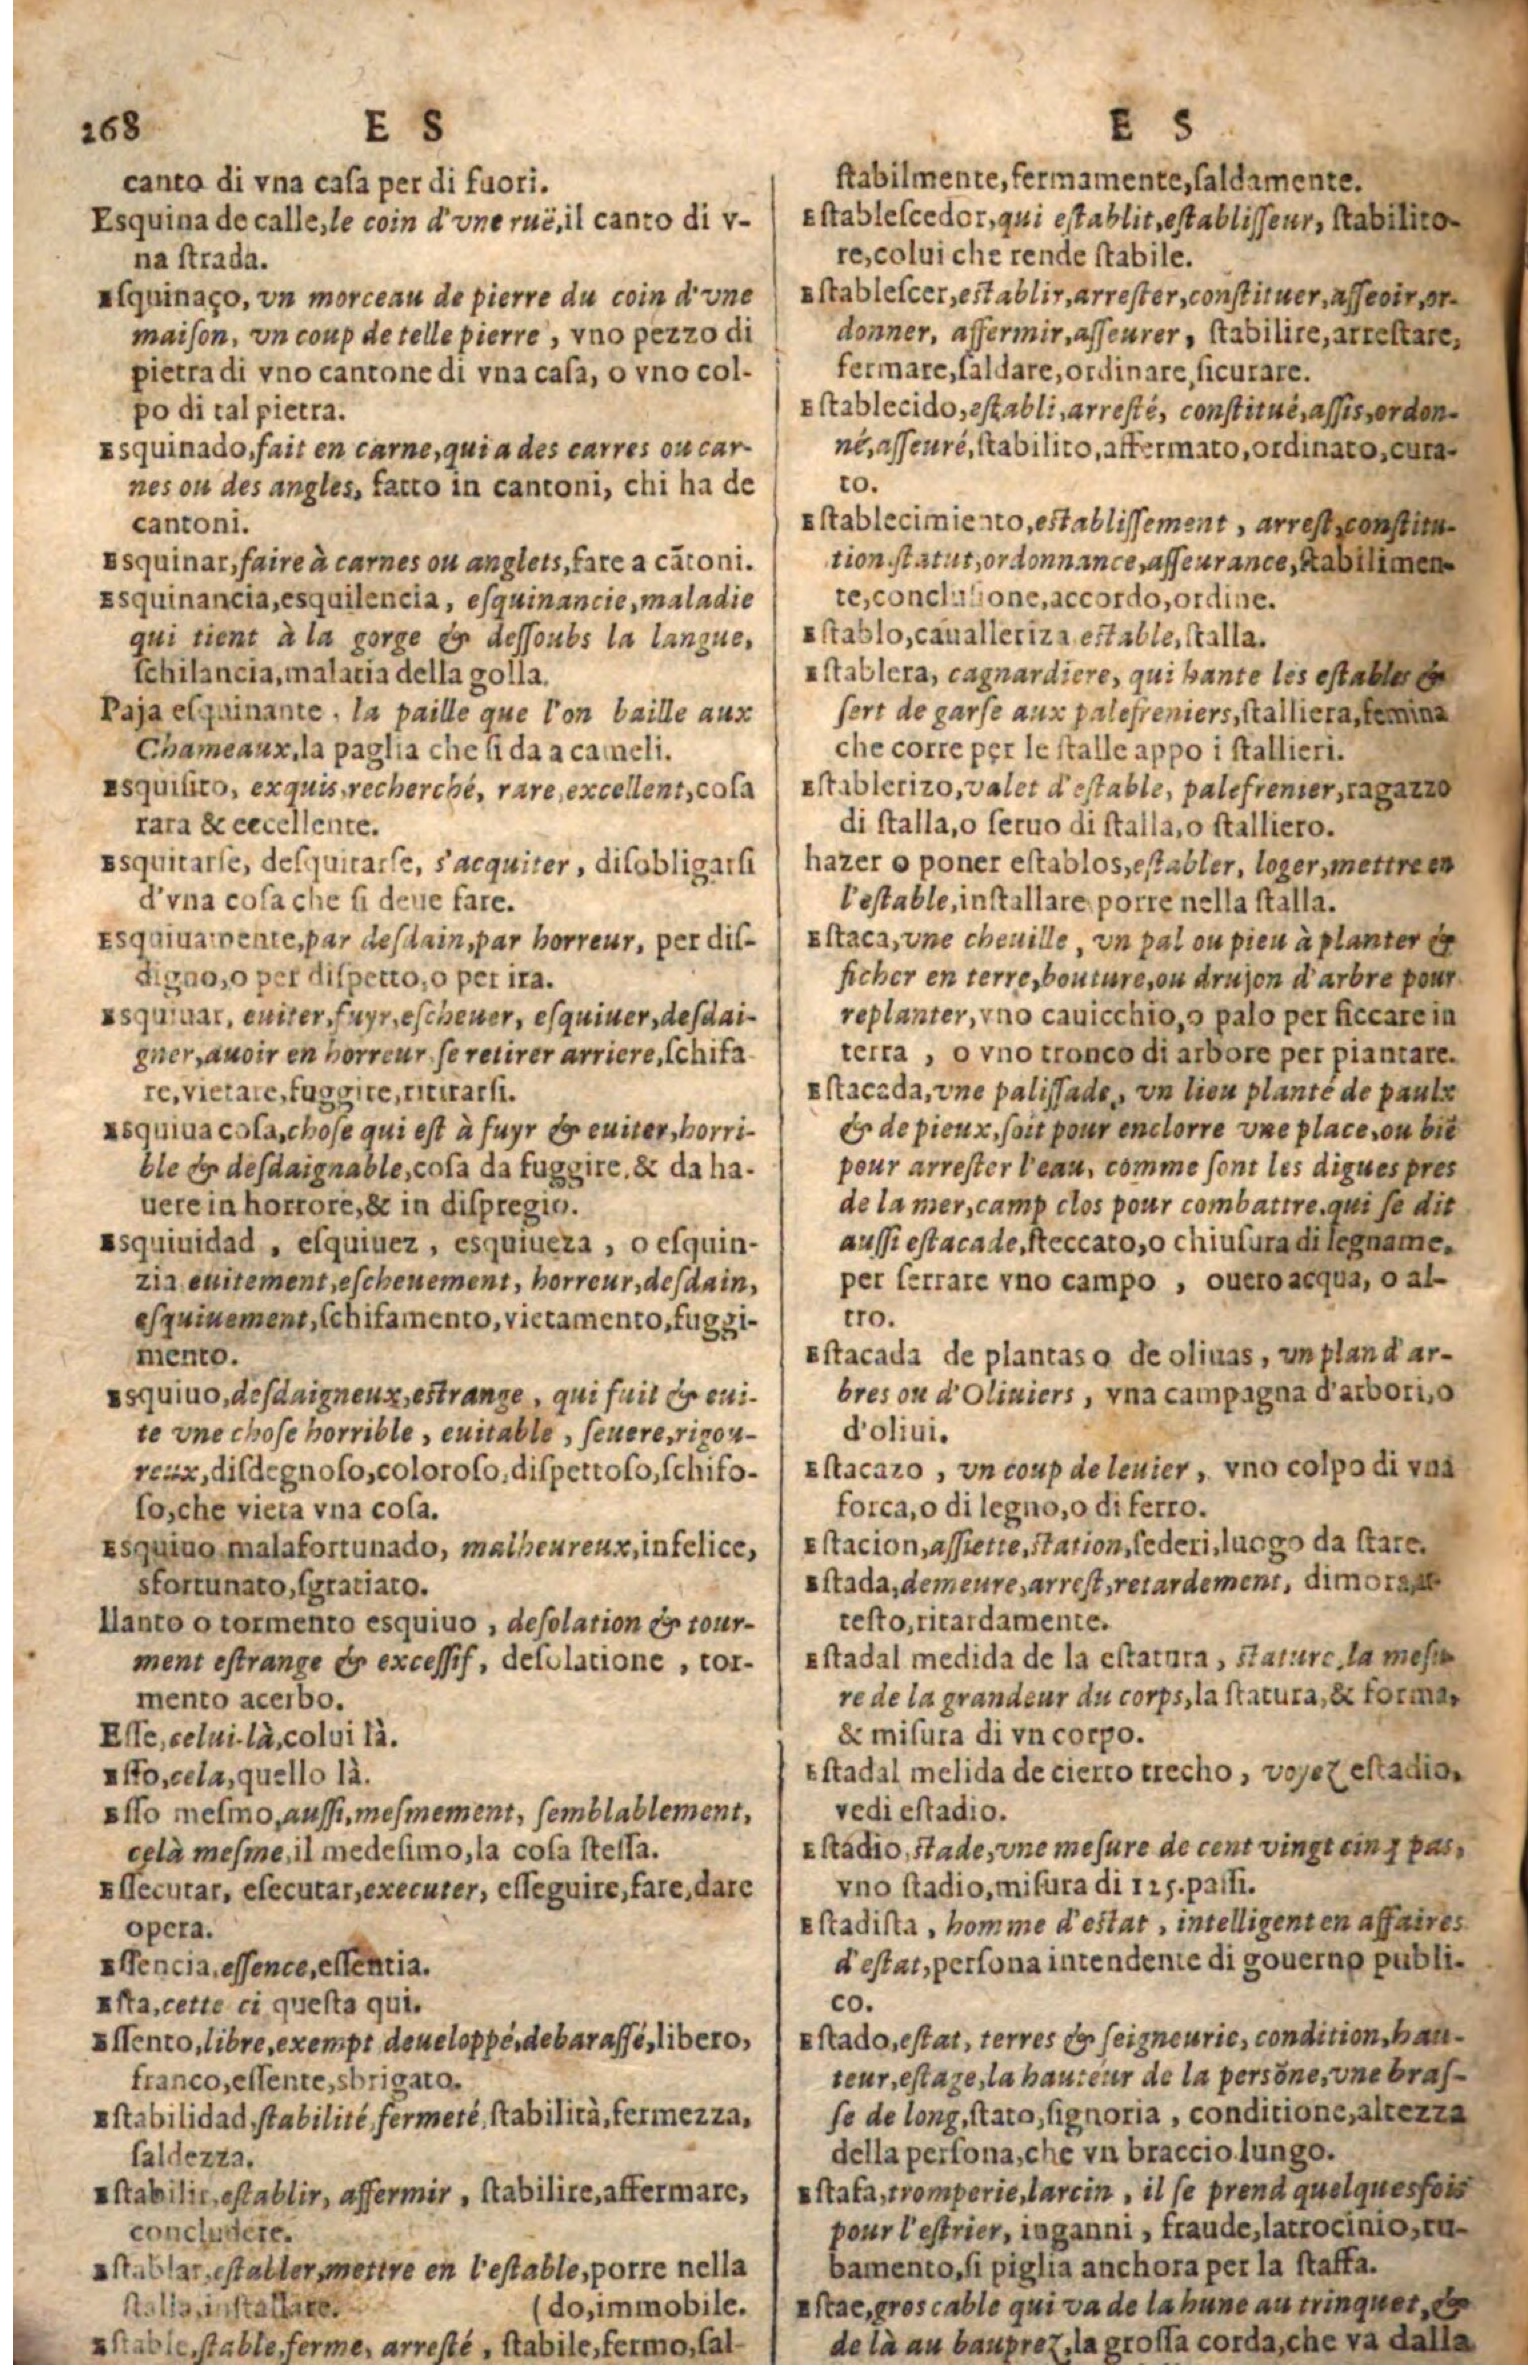 268 E S
canto di vna caſa per di fuori.
Esquina de calle, le coin d'vne ruë, il canto di v-
na ſtrada.
Eſquinaço, vn morceau de pierre du coin d'vne
maiſon, vn coup de telle pierre, vno pezzo di
pietra di vno cantone di vna caſa, o vno col-
po di tal pietra.
Esquinado, fait en carne, qui a des carres ou car-
nes ou des angles, fatto in cantoni, chi ha de
cantoni.
Esquinar, faire à carnes ou anglets, fare a cãtoni.
Esquinancia, esquilencia, eſquinancie, maladie
qui tient à la gorge & deſſoubs la langue,
ſchilancia, malatia della golla.
Paja eſquinante, la paille que l'on baille aux
Chameaux, la paglia che ſi da a cameli.
Esquiſito, exquis, recherché, rare, excellent, coſa
rara & eccellente.
Esquitarſe, deſquitarſe, s'acquiter, diſobligarſi
d'vna coſa che ſi deue fare.
Esquiuamente, par deſdain, par horreur, per diſ-
digno, o per diſpetto, o per ira.
Esquiuar, euiter, fuyr, eſcheuer, eſquiuer, deſdai-
gner, auoir en horreur ſe retirer arriere, ſchifa
re, vietare, fuggire, ritirarſi.
Esquiua coſa, choſe qui eſt à fuyr & euiter, horri-
ble & deſdaignable, coſa da fuggire, & da ha-
uere in horrore, & in diſpregio.
Esquiuidad, eſquiuez, esquiueza, o eſquin-
zia euitement, eſcheuement, horreur, deſdain,
eſquiuement, ſchifamento, vietamento, fuggi-
mento.
Esquiuo, deſdaigneux, eſtrange, qui fuit & eui-
te vne choſe horrible, euitable, ſeuere, rigou-
reux, diſdegnoſo, coloroſo, diſpettoſo, ſchifo-
ſo, che vieta vna coſa.
Esquiuo malafortunado, malheureux, infelice,
sfortunato, ſgratiato.
llanto o tormento esquiuo, deſolation & tour-
ment eſtrange & exceſſif, deſolatione, tor-
mento acerbo.
Eſſe, celui-là, colui là.
Eſſo, cela, quello là.
Eſſo meſmo, auſſi, meſmement, ſemblablement,
celà meſme, il medeſimo, la coſa ſteſſa.
Eſſecutar, eſecutar, executer, eſſeguire, fare, dare
opera.
Eſſencia, eſſence, eſſentia.
Eſta, cette ci queſta qui.
Eſſento, libre, exempt deueloppé, debaraſſé, libero,
franco, eſſente, sbrigato.
Eſtabilidad, ſtabilité, fermeté, ſtabilità, fermezza,
ſaldezza.
Eſtabilir, eſtablir, affermir, ſtabilire, affermare,
concludere.
Eſtablar, eſtabler, mettre en l'eſtable, porre nella
ſtalla, inſtallare. (do, immobile.
Eſtable, ſtable, ferme, arreſté, ſtabile, fermo, ſal-
E S
ſtabilmente, fermamente, ſaldamente.
Eſtableſcedor, qui eſtablit, eſtabliſſeur, ſtabilito-
re, colui che rende ſtabile.
Eſtableſcer, eſtablir, arreſter, conſtituer, aſſeoir, or-
donner, affermir, aſſeurer, ſtabilire, arreſtare,
fermare, ſaldare, ordinare, ſicurare.
Eſtablecido, eſtabli, arreſté, conſtitué, aſſis, ordon-
né, aſſeuré, ſtabilito, affermato, ordinato, cura-
to.
Eſtablecimiento, eſtabliſſement, arreſt, conſtitu-
tion, ſtatut, ordonnance, aſſeurance, ſtabilimen-
te, concluſione, accordo, ordine.
Eſtablo, caualleriza eſtable, ſtalla.
Eſtablera, cagnardiere, qui hante les eſtables &
ſert de garſe aux palefreniers, ſtalliera, femina
che corre per le ſtalle appo i ſtallieri.
Eſtablerizo, valet d'eſtable, palefrenier, ragazzo
di ſtalla, o ſeruo di ſtalla, o ſtalliero.
hazer o poner eſtablos, eſtabler, loger, mettre en
l'eſtable, inſtallare porre nella ſtalla.
Eſtaca, vne cheuille, vn pal ou pieu à planter &
ficher en terre, bouture, ou drujon d'arbre pour
replanter, vno cauicchio, o palo per ficcare in
terra, o vno tronco di arbore per piantare.
Eſtacada, vne paliſſade, vn lieu planté de paulx
& de pieux, ſoit pour enclorre vne place, ou biẽ
pour arreſter l'eau, comme ſont les digues pres
de la mer, camp clos pour combattre, qui ſe dit
auſſi eſtacade, ſteccato, o chiuſura di legname,
per ſerrare vno campo, ouero acqua, o al-
tro.
Eſtacada de plantas o de oliuas, vn plan d'ar-
bres ou d'Oliuiers, vna campagna d'arbori, o
d'oliui.
Eſtacazo, vn coup de leuier, vno colpo di vna
forca, o di legno, o di ferro.
Eſtacion, aſſiette, ſtation, ſederi, luogo da ſtare.
Eſtada, demeure, arreſt, retardement, dimora, ar-
reſto, ritardamente.
Eſtadal medida de la eſtatura, ſtature, la meſu-
re de la grandeur du corps, la ſtatura, & forma,
& miſura di vn corpo.
Eſtadal melida de cierto trecho, voyez eſtadio,
vedi eſtadio.
Eſtadio, ſtade, vne meſure de cent vingt cinq pas,
vno ſtadio, miſura di 125. paſſi.
Eſtadiſta, homme d'eſtat, intelligent en affaires
d'eſtat, perſona intendente di gouerno publi-
co.
Eſtado, eſtat, terres & ſeigneurie, condition, hau-
teur, eſtage, la hauteur de la perſõne, vne braſ-
ſe de long, ſtato, ſignoria, conditione, altezza
della perſona, che vn braccio lungo.
Eſtafa, tromperie, larcin, il ſe prend quelquesfois
pour l'eſtrier, inganni, fraude, latrocinio, ru-
bamento, ſi piglia anchora per la ſtaffa.
Eſtae, gros cable qui va de la hune au trinquet, &
de là au bauprez, la groſſa corda, che va dalla